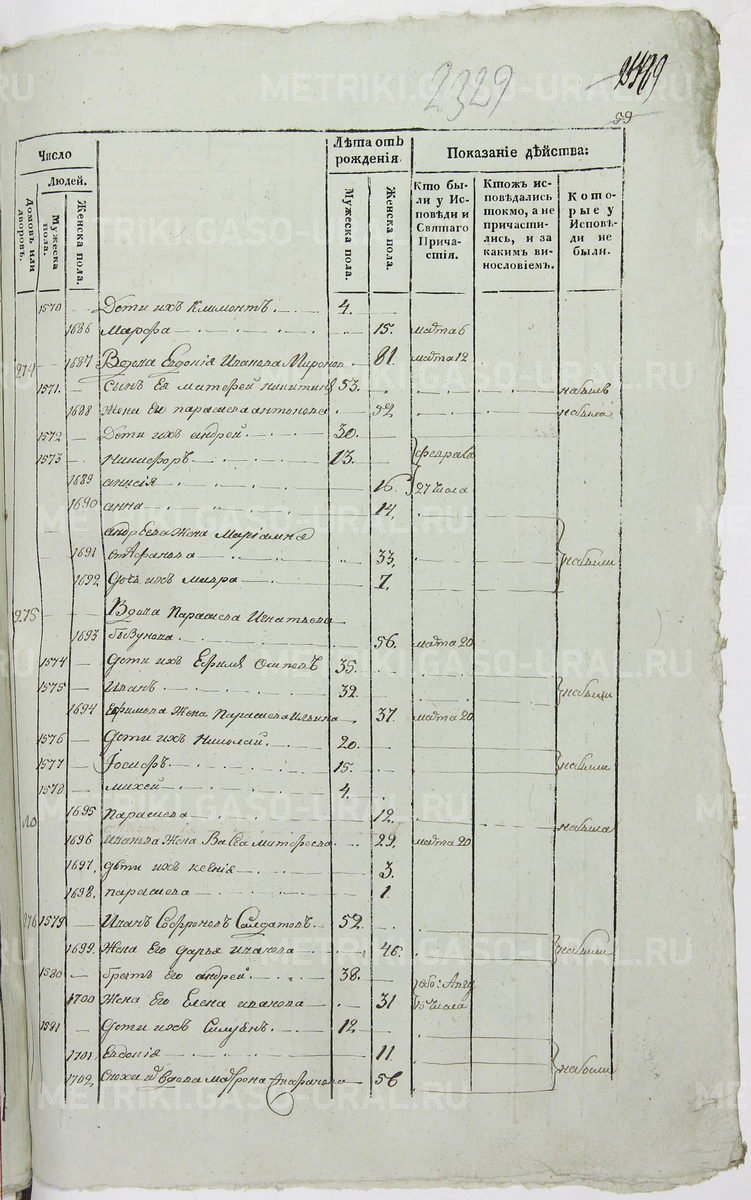 2329
59
Число
Людей.
Домовъ или дворовъ.
Мужеска пола.
Женска пола.
Лѣта отъ рожденія
Мужеска пола.
Женска пола.
Показаніе дѣйства:
Кто были у Исповѣди и Святаго Причастія.
Ктожъ исповѣдались токмо, а не причастились, и за какимъ винословіемъ.
Которые у Исповѣди не были.
1570 Дети ихъ Климонтъ 4.
1686 Марфа 15. марта 6
274 1687 Вдова Евдокія Иванова 81. марта 12
1571. Сынъ Ея Матфей Никитинъ 53. небылъ
1688 Жена Его Параскева Антонова 52. небыла
1572 Дети ихъ Андрей 30.
1573 Никифоръ 13. февраля
1689 Анисія 16. 27 числа
1690 Анна 14.
Андреева Жена Маріамна
1691 Стефанова 33. небыли
1692 Дочь ихъ Мавра 7.
275 Вдова Параскева Игнатьева
1693 56. марта 20
1574 Дети ихъ Ефимъ Осиповъ 35.
1575 Иванъ 32. небыли
1694 Ефимова Жена Параскева Ильина 37 марта 20
1576 Дети ихъ Николай 20.
1577 Іосифъ 15. небыли
1578 Михей 4.
1695 Параскева 12. небыла
1696 Иванова Жена Васса Матфеева 29. марта 20
1697. Дѣти ихъ Ксенія 3.
1698. Параскева 1.
276 1579 Иванъ Софроновъ Салдатовъ 52.
1699. Жена Его Дарья Иванова 46. небыли
1580 Братъ Его Андрей 38.
1700 Жена Его Елена Иванова 31 числа
1581 Дети ихъ 12.
1701 Евдокія 11. небыли
1702. Сноха ихъ вдова Матрона 56
METRIKI.GASO-URAL.RU